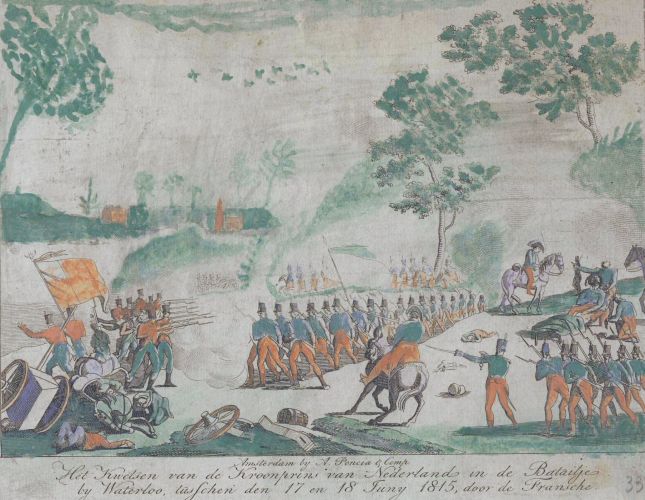 Amsterdam by A. Poncia & Comp
Het Kwetsen van de Kroonprins van Nederland in de Batailje
by Waterloo, tusschen den 17 en 18 Juny 1815, door de Fransche
33